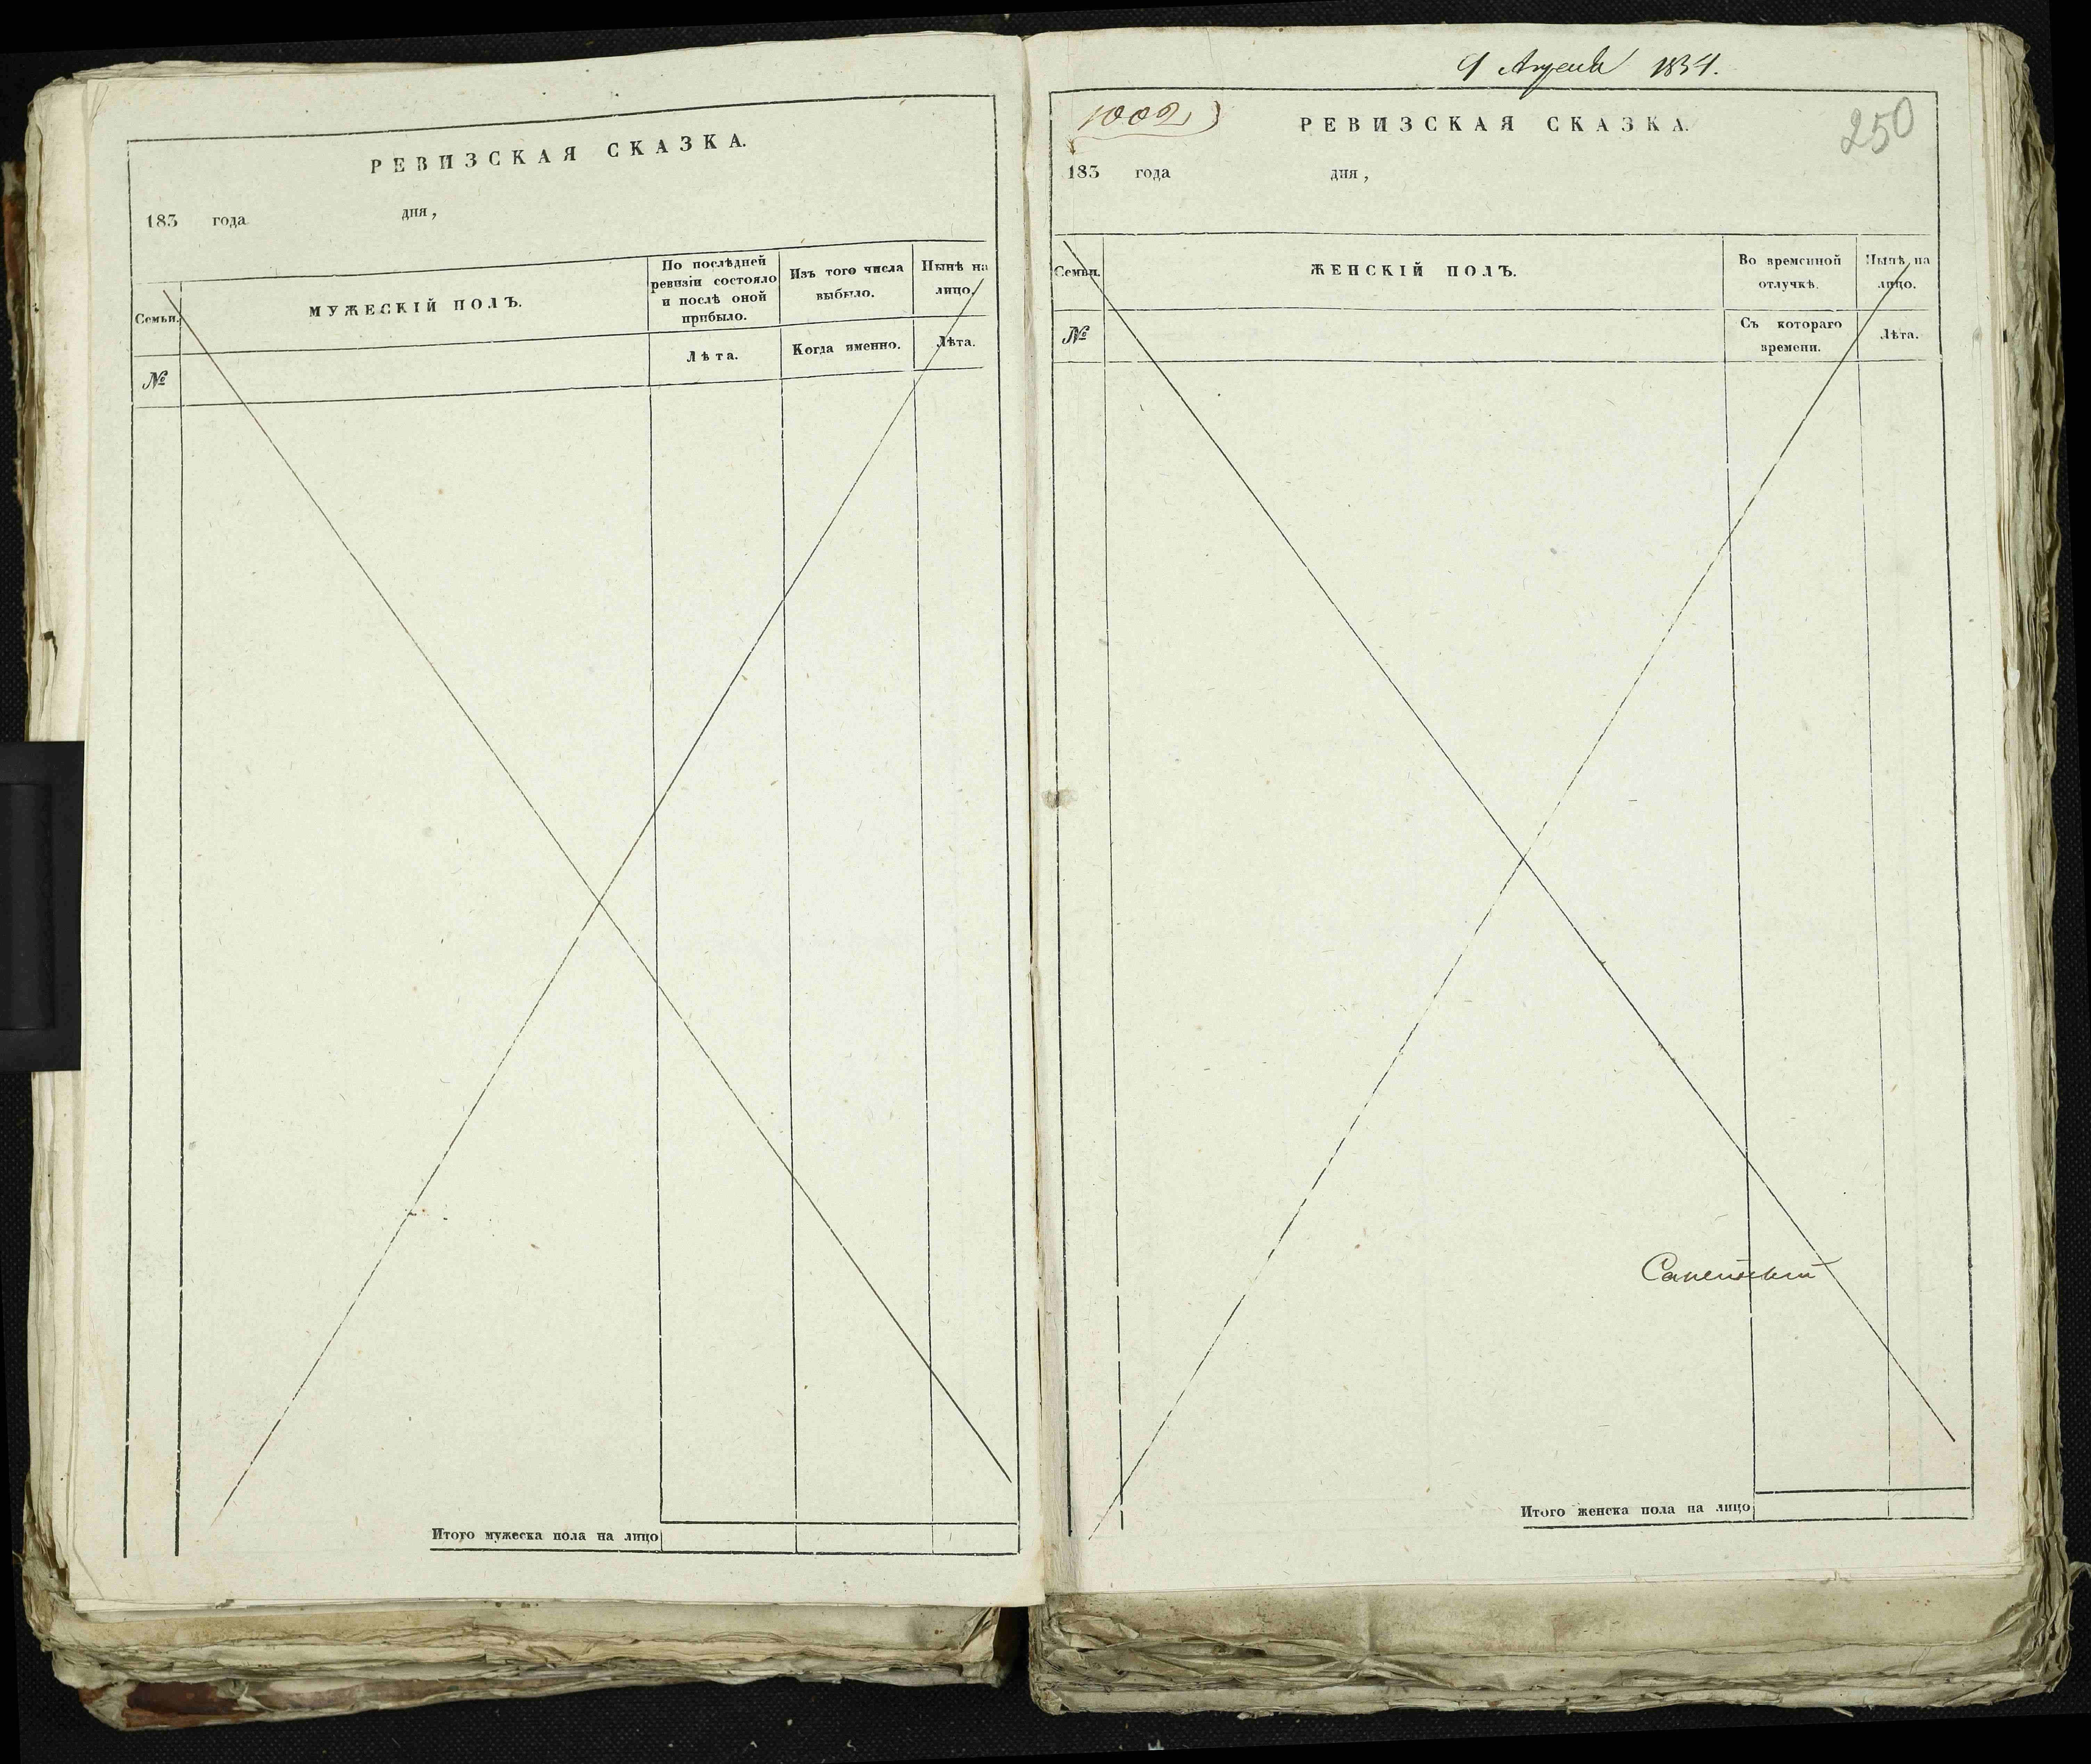 РЕВИЗСКАЯ СКАЗКА.
183 года дня,
Семьи.
МУЖЕСКІЙ ПОЛЪ.
По послѣдней ревизіи состояло и послѣ оной прибыло.
Изъ того числа выбыло.
Нынѣ на лицо.
№
Лѣта.
Когда именно.
Лѣта.
Итого мужеска пола на лицо
9 Апреля 1834.
1002
250
РЕВИЗСКАЯ СКАЗКА.
183 года дня,
Семьи.
ЖЕНСКІЙ ПОЛЪ.
Во временной отлучкѣ.
Нынѣ на лицо.
№
Съ котораго времени.
Лѣта.
Итого женска пола на лицо